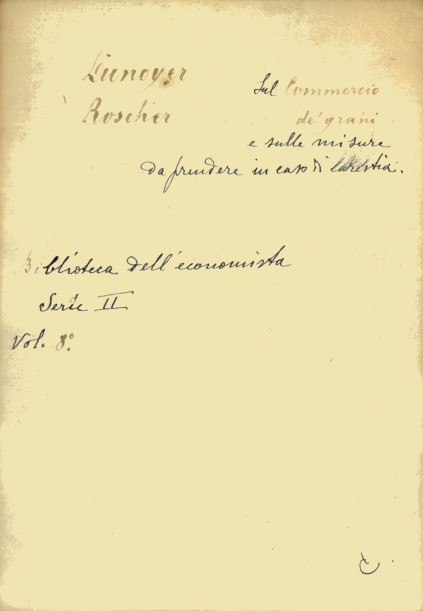 Dunoyer
Roscher
Sul Commercio
de' grani
e sulle misure
da prendere in caso di carestia.
Biblioteca dell'economista
Serie II
Vol. 8°.